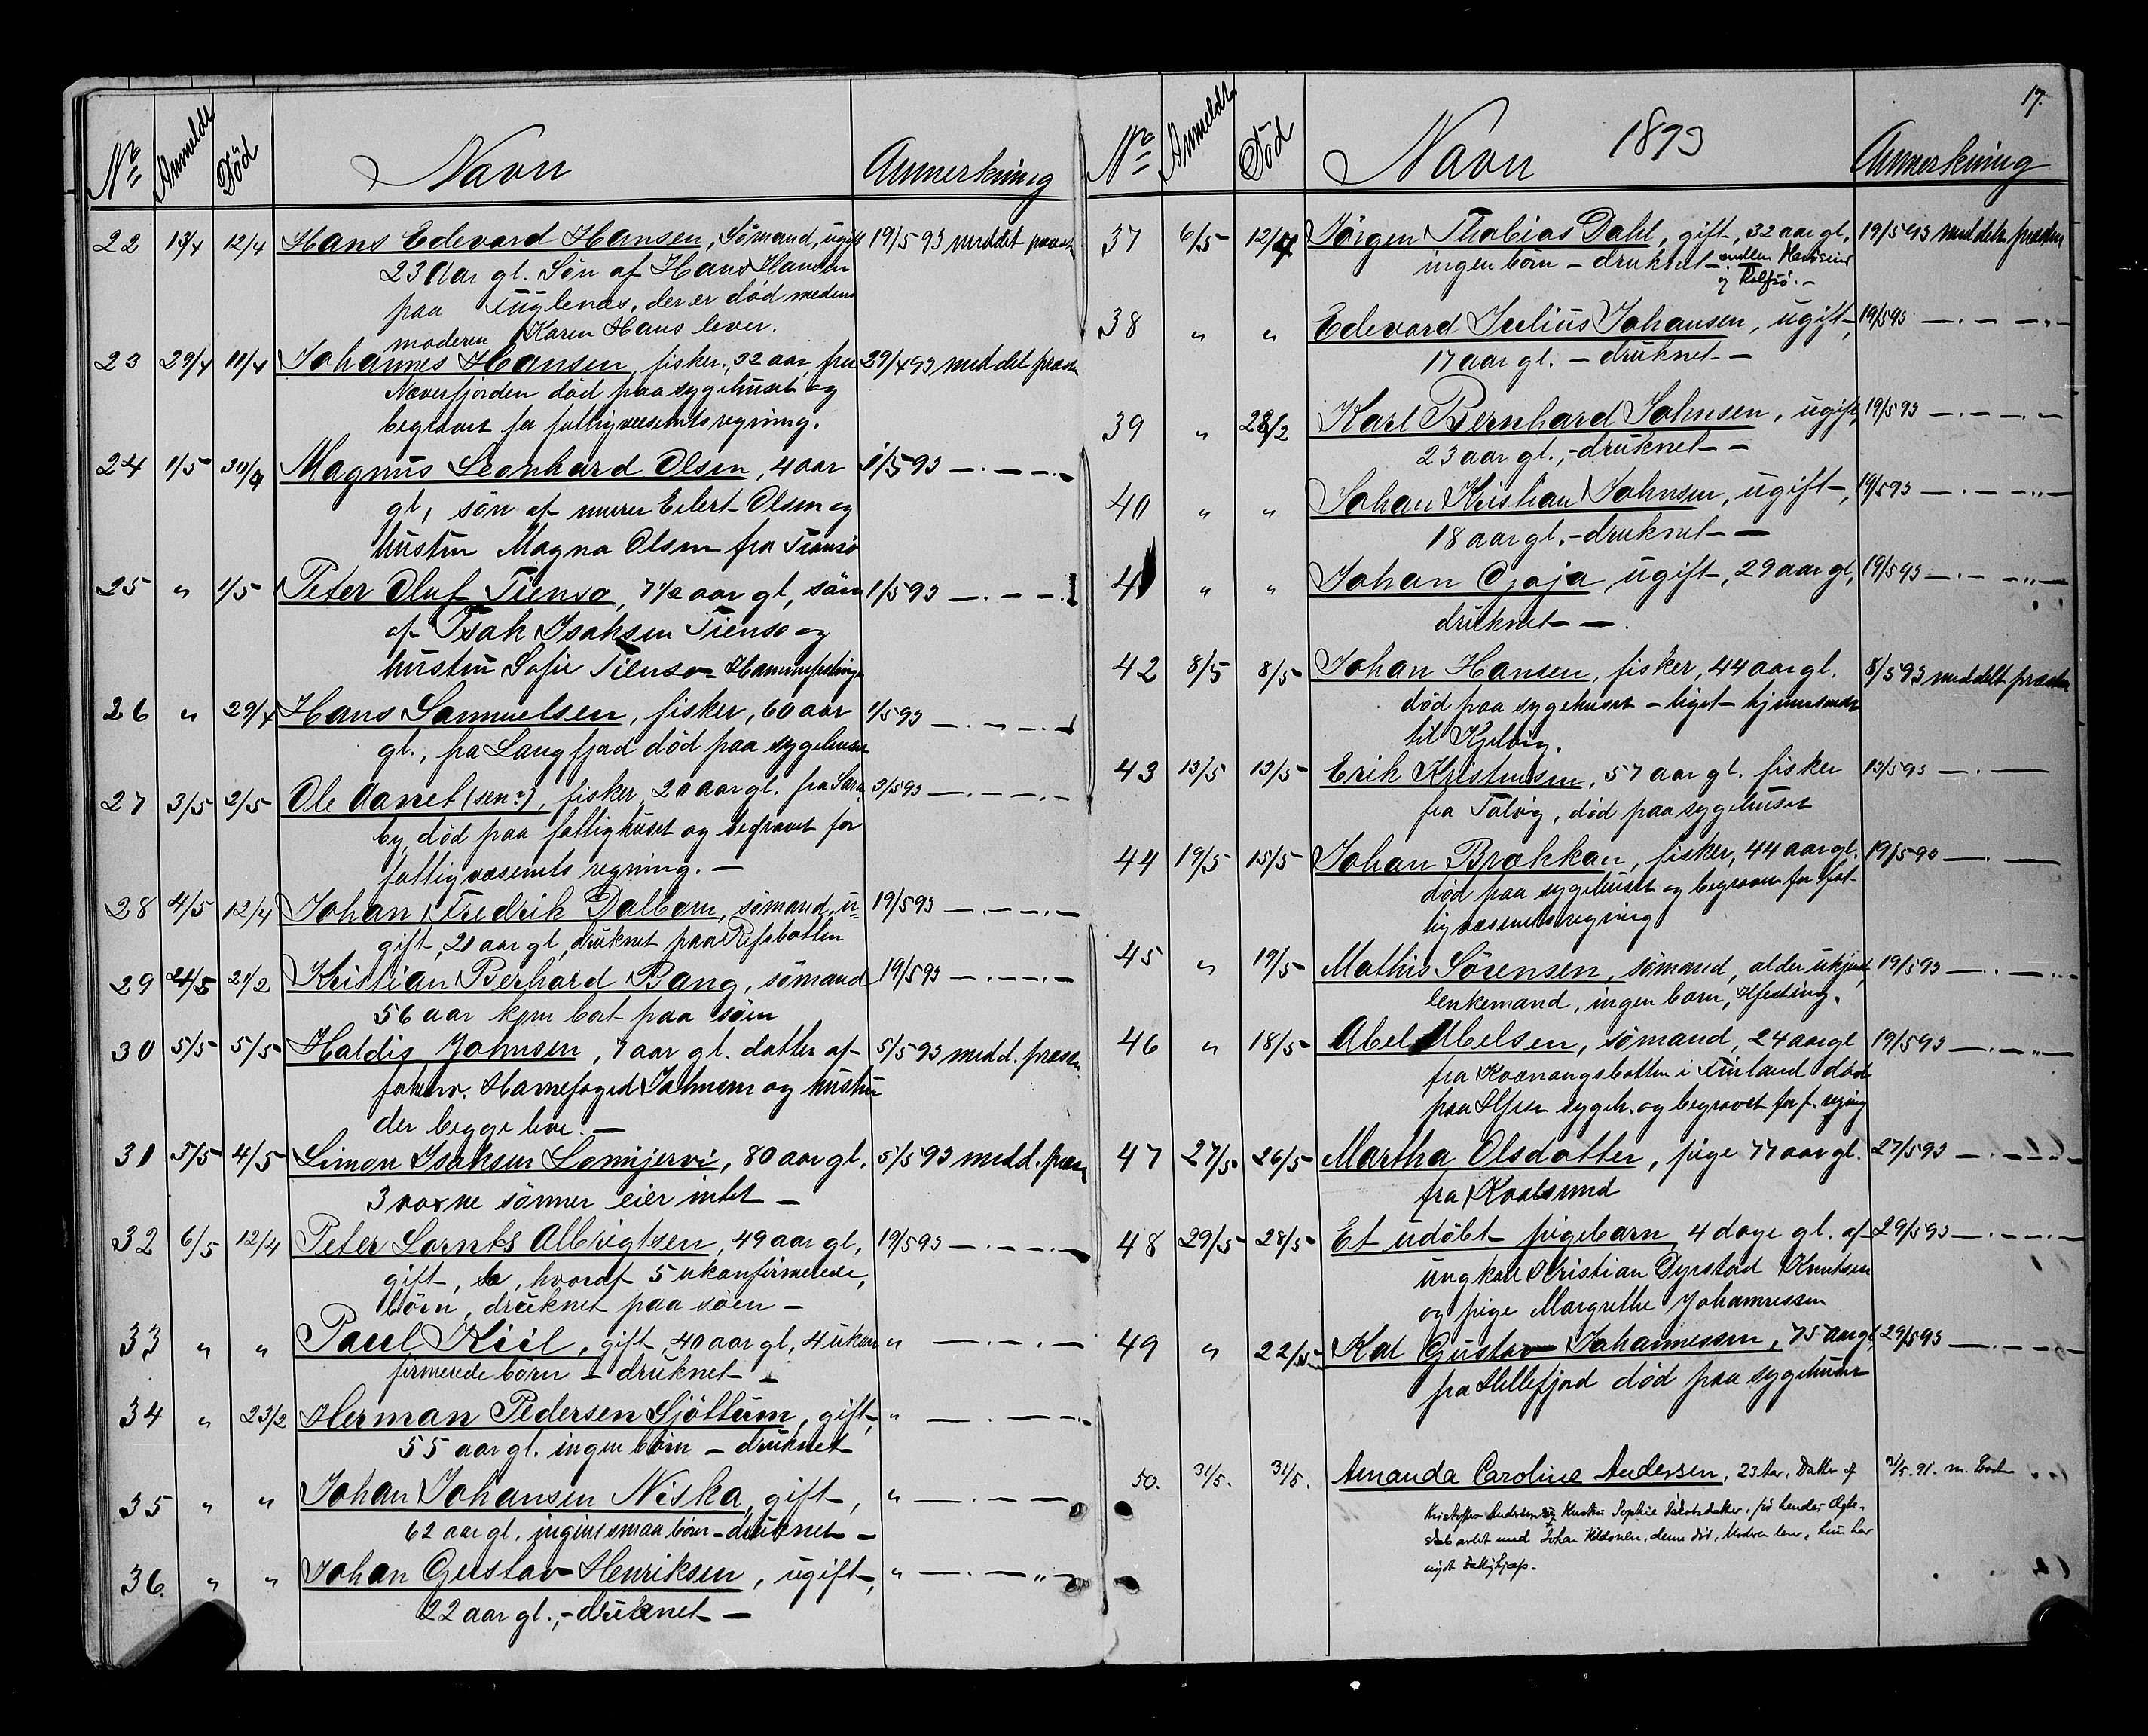 No Anmeldt Död Navn Anmerkning
22 13/4 12/4 Hans Edevard Hansen, Sömand, ugift 19/5 93 meddelt prövst
23 Aar gl. Søn af Hans Hansen
paa Fuglenæs, der er död medens
moderen Karen Hans lever.
23 29/4 11/4 Johannes Hansen, fisker, 32 aar, fra 29/4 93 meddelt præsten
Næverfjorden död paa sygehuset og
begravet for fattigvæsenets regning.
24 1/5 30/4 Magnus Leonhard Olsen, 4 aar 1/5 93 —.—.—
gl, sön af murer Eilert Olsen og
hustru Magna Olsen fra Tromsö
25 " 1/5 Peter Oluf Tienso, 7 1/2 aar gl, sön 1/5 93 —.—.—
af Isak Isaksen Tienso og
hustru Sofie Tienso
26 " 29/4 Hans Samuelsen, fisker, 60 aar 1/5 93 —.—.—
gl., fra Langfjord död paa sygehuset
27 3/5 2/5 Ole Aanet (sen?), fisker 20 aar gl. fra 3/5 93 —.—.—
by, död paa fattighuset og begravet for
fattigvæsenets regning. —
28 4/5 12/4 Johan Fredrik Dalbom, sömand, u- 19/5 93 —.—.—
gift, 21 aar gl, druknet paa Refsbotten
29 4/5 21/2 Kristian Berhard Bang, sömand 19/5 93 —.—.—
56 aar kom bort paa søen
30 5/5 5/5 Haldis Johnsen, 7 aar gl. datter af 5/5 93 medd. præsten
Havnefoged Johnsen og hustru
der begge leve. —
31 5/5 4/5 Simon Isaksen Lomijervi, 80 aar gl. 5/5 93 medd. præsten
3 voxne sönner eier intet —
32 6/5 12/4 Peter Lornts Albrigtsen, 49 aar gl, 19/5 93 —.—.—
gift, hvoraf 5 ukonfirmerede,
börn, druknet paa söen —
33 " " Paul Kiil, gift, 40 aar gl, 4 ukon " —.—.—
firmerede börn — druknet —
34 " 23/2 Herman Pedersen Sjöttum, gift, " —.—.—
55 aar gl. ingen börn — druknet
35 " " Johan Johansen Niska, gift, " —.—.—
62 aar gl. ingen smaa börn — druknet —
36. " " Johan Gustav Henriksen, ugift, " —.—"—
22 aar gl., — druknet —
17.
No Anmeldt Död Navn 1893 Anmerkning
37 6/5 12/4 Jörgen Thobias Dahl, gift, 32 aar gl, 19/5 93 meddelt præsten
ingen börn — druknet — mellem Havösund
og Rolfsö. —
38 " " Edevard Julius Johansen, ugift, 19/5 93 —.—
17 aar gl. — druknet —
39 " 23/2 Karl Bernhard Johnsen, ugift, 19/5 93 —.—.—
23 aar gl., — druknet —
40 " " Johan Kristian Johnsen, ugift, 19/5 93 —.—"—
18 aar gl. — druknet —
41 " " Johan Gjaja, ugift, 29 aar gl, 19/5 93 —.—"—
druknet —.
42 8/5 8/5 Johan Hansen, fisker, 44 aar gl. 8/5 93 meddelt præsten
död paa sygehuset — liget hjemsendt
til Kjelvig.
43 13/5 13/5 Erik Kristensen, 57 aar gl. fisker 13/5 93 —.—
fra Talvig, död paa sygehuset
44 19/5 15/5 Johan Brækkan, fisker, 44 aar gl. 19/5 93 —.—
död paa sygehuset og begravet for fat-
tigvæsenets regning
45 " 19/5 Mathis Sörensen, sömand, alder ukjent, 19/5 93 —.—
enkemand, ingen barn, Hfesting.
46 " 18/5 Abel Abelsen, sömand, 24 aar gl 19/5 93 —.—"—
fra Kvænangsbotten i Finland död
paa Hfest sygeh. og begravet for f. regning
47 27/5 26/5 Martha Olsdatter, pige 77 aar gl. 27/5 93 —.—
fra Kvalsund
48 29/5 28/5 Et udöbt pigebarn 4 dage gl. af 29/5 93 —.—.—
ungkarl Kristian Dyrstad Knutsen
og pige Margrethe Johannessen
49 " 22/5 Karl Gustav Johannessen, 75 aar gl, 29/5 93 —.—.—
fra Hellefjord död paa sygehuset
50. 31/5. 31/5. Amanda Caroline Andersen, 23 Aar, Datter af 31/5. 91. m.
Kristoffer Andersen og Hustru Sophie Jakobsdatter, för hendes Ægte-
skab avlet med Johan, denne död, Modren lever, hun har
nydt Fattighjælp.